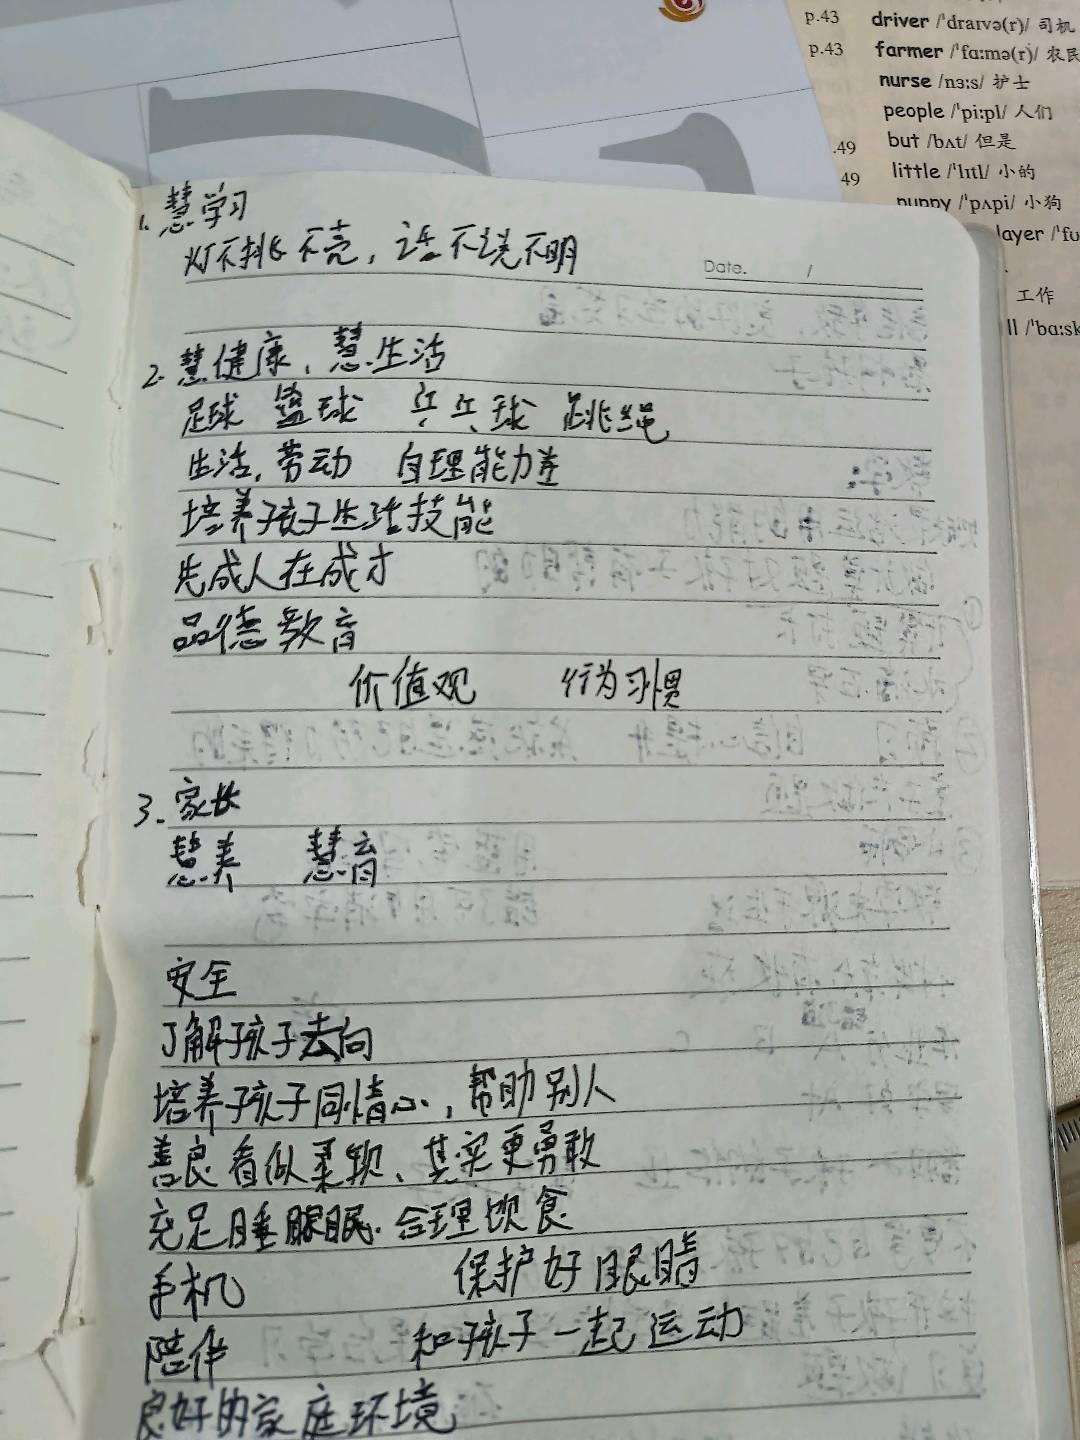 p.43 driver /ˈdraɪvə(r)/ 司机
p.43 farmer /ˈfɑːmə(r)/ 农民
nurse /nɜːs/ 护士
people /ˈpiːpl/ 人们
.49 but /bʌt/ 但是
49 little /ˈlɪtl/ 小的
puppy /ˈpʌpi/ 小狗
layer /ˈfu
工作
ll /ˈbɑːsk
Date. /
1. 慧学习
灯不挑不亮，话不说不明
2. 慧健康、慧生活
足球 篮球 乒乓球 跳绳
生活，劳动 自理能力差
培养孩子生活技能
先成人在成才
品德教育
价值观 行为习惯
3. 家长
慧养 慧育
安全
了解孩子去向
培养孩子同情心，帮助别人
善良看似柔软、其实更勇敢
充足睡眠. 合理饮食
手机 保护好眼睛
陪伴 和孩子一起运动
良好的家庭环境